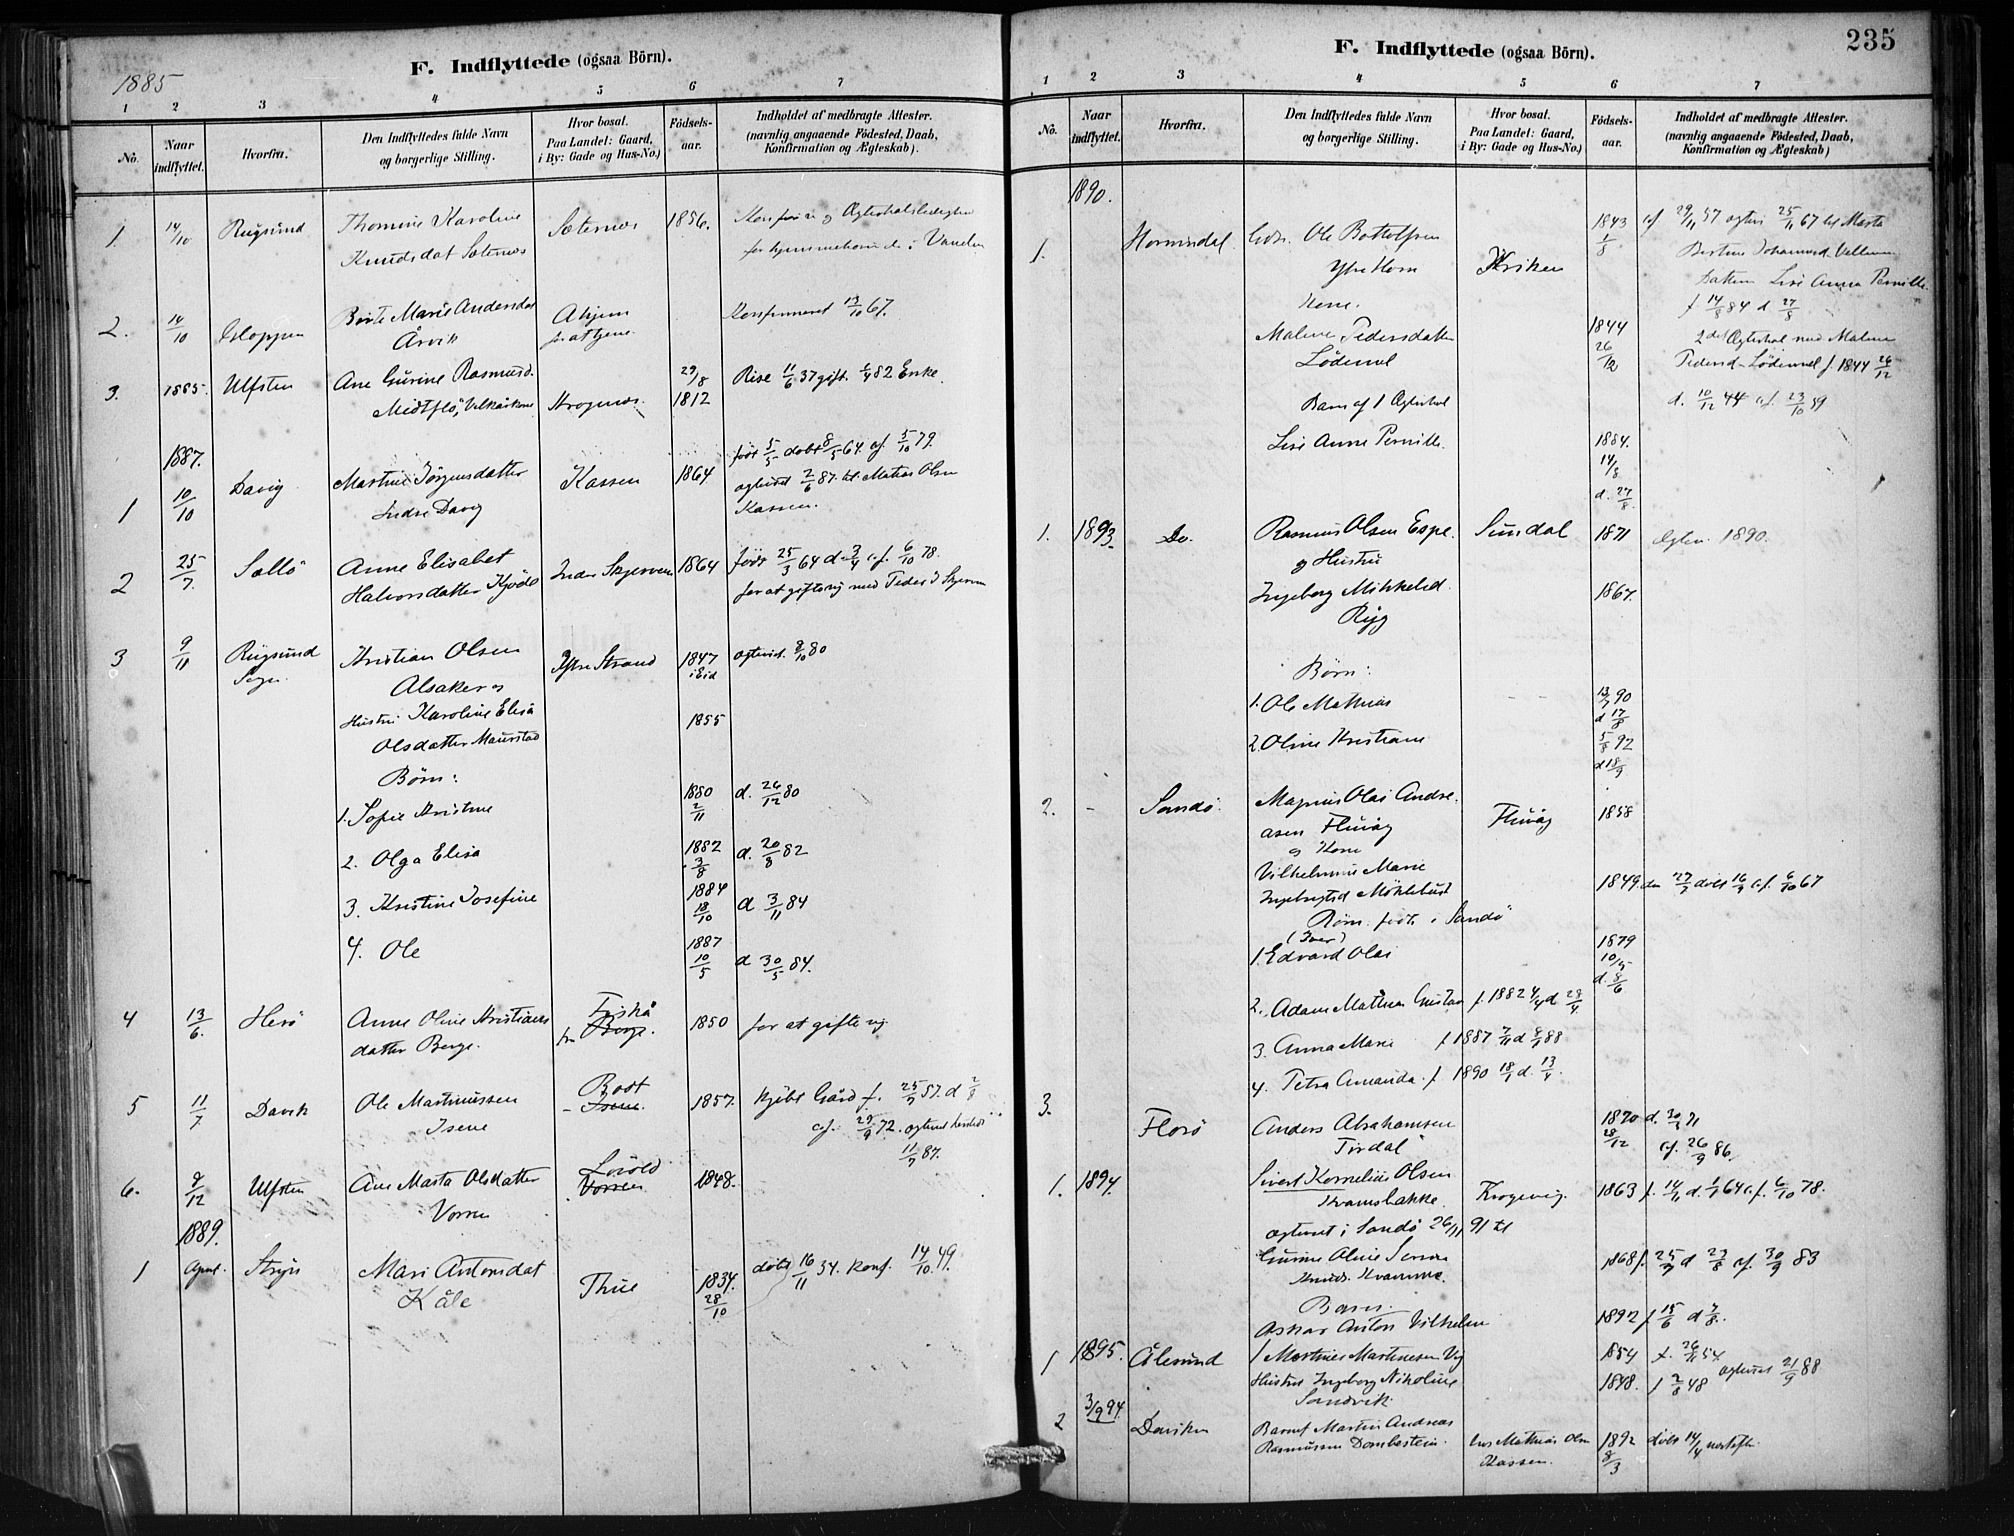 1885
F. Indflyttede (ogsaa Börn).
1 2 3 4 5 6 7
No. Naar indflyttet. Hvorfra. Den Indflyttedes fulde Navn og borgerlige Stilling. Hvor bosat. Paa Landet: Gaard, i By: Gade og Hus-No.) Födsels-aar. Indholdet af medbragte Attester. (navnlig angaaende Födested, Daab, Konfirmation og Ægteskab).
1. 14/10 Rugsund Thomine Karoline Sæternes 1856.
Knudsdat Sæternes
2. 14/10 Gloppen Berte Marie Andersdat Ahjem Konfirmeret 13/10 67.
Årvik for at tjene
3. 1885. Ulfsten Ane Gurine Rasmusd. 29/8 Rise 11/6 37 gift Enke
Midtflö, 1812
1887.
født 5/5 døbt 8/5 64. cf. 5/10 79.
1 10/10 Davig Martine Jørgensdatter Kassen 1864 ægteviet 2/6 87. til Matias Olsen
Indre Davig Kassen.
2 25/7. Sællö Anne Elisabet Indre Skjerven 1864 født 25/3 64 d. 3/4 cf. 6/10 78.
Halvorsdatter Kjöde for at gifte sig med Peder J Skjerven
3 9/11 Rugsund Kristian Olsen Ytre Strand 1847 ægteviet 80
Sogn. Alsaker og i Eid
Hustru Karoline Elisa 1855
Olsdatter Maurstad
Børn:
1. Sofie Kristine 1880 2/11 d. 26/12 80
2. Olga Elisa 1882 3/8 d. 20/8 82
3. Kristine Josefine 1884 18/10 d 3/11 84
4. Ole 1887 10/5 d 30/5 84.
4 13/6. Herö Anne Oline Kristians 1850 for at gifte sig
datter Berge. Berge.
5 11/7 Davik Ole Martinussen 1857. kjöbt Gård f. 25/7 57. d 2/8
Isene Isene. cf. 29/9 72. ægteviet
11/7 87.
6. 8/12 Ulfsten Ane Marta Olsdatter 1848.
Vorren Vorren
1889.
1 April. Stryn Mari Antonsdat Thue 1834. døbt 16/11 34. konf. 14/10. 49.
Kåle 28/10
235
F. Indflyttede (ogsaa Börn).
1 2 3 4 5 6 7
No. Naar indflyttet. Hvorfra. Den Indflyttedes fulde Navn og borgerlige Stilling. Hvor bosat. Paa Landet: Gaard, i By: Gade og Hus-No.) Födsels-aar. Indholdet af medbragte Attester. (navnlig angaaende Födested, Daab, Konfirmation og Ægteskab)
1890.
1. Hornindal. Ole Bottolfsen 1843 cf 29/11 57 ægtev. 25/11 67 til Marta
Ytre Horn
Kone. Datter Lise Anna Pernille
f 14/8 84 d 27/8
Malene Pedersdatter 1844 2det Ægteskab med Malene
Lødemel 26/12 Pedersd. Lødemel f. 1844 26/12
Barn af 1 Ægteskab d. 10/12 44 cf. 23/10 59
Lise Anne Pernille 1884.
14/8
d. 27/8.
1. 1893. Do. Rasmus Olsen Espe. Sundal 1871 Ægtev. 1890.
og Hustru
Ingeborg Mikkelsd. 1867.
Rygg
Børn:
1. Ole Mathias 13/7 90
d 17/8
2. Oline Kristiane 5/8 92
d 18/9
2. - Sandö. Magnus Olai Andre- Fluvåg 1858
asen Fluvåg
og Kone
Vilhelmine Marie
Ingebrigtsd Möklebust 1849 cf. 6/10 67
Børn født i Sandö
(Iver)
1. Edvard Olai 1879
d. 8/6
2. Adam Mathias Gustav f. 1882 4/4 d 28/4.
3. Anna Marie f. 1887 7/11 d 8/1 88
4. Petra Amanda f. 1890 18/1 d. 13/4.
3. Florö Anders Abrahamsen 1870 d. 71
Tirdal 28/12 cf. 26/9 86.
1. 1894. Sivert Kornelius Olsen
Kvamsbakke. Krogevig. 1863 f. cf. 6/10 78.
ægteviet i Sandö 26/11 91 til
Gurine Oline 1868 f. 25/7 d 23/8 cf. 30/9 83
Knuds. Kvamme.
Barn.
Oskar Anton Vilhelm 1892 f 15/6 d 7/8.
1 1895. Ålesund 1 Martines Martinesen Vig 1854 f. 26/11 54
Hustru Ingeborg Nikoline 1848. f 2/8 48 ægteviet 21/9 88
Sandvik
2 3/9 94. Daviken Barnet Martin Andreas
Rasmussen Dombestein. hos Mathias Olsen 1892 døbt 14/4
Kassen. 8/3